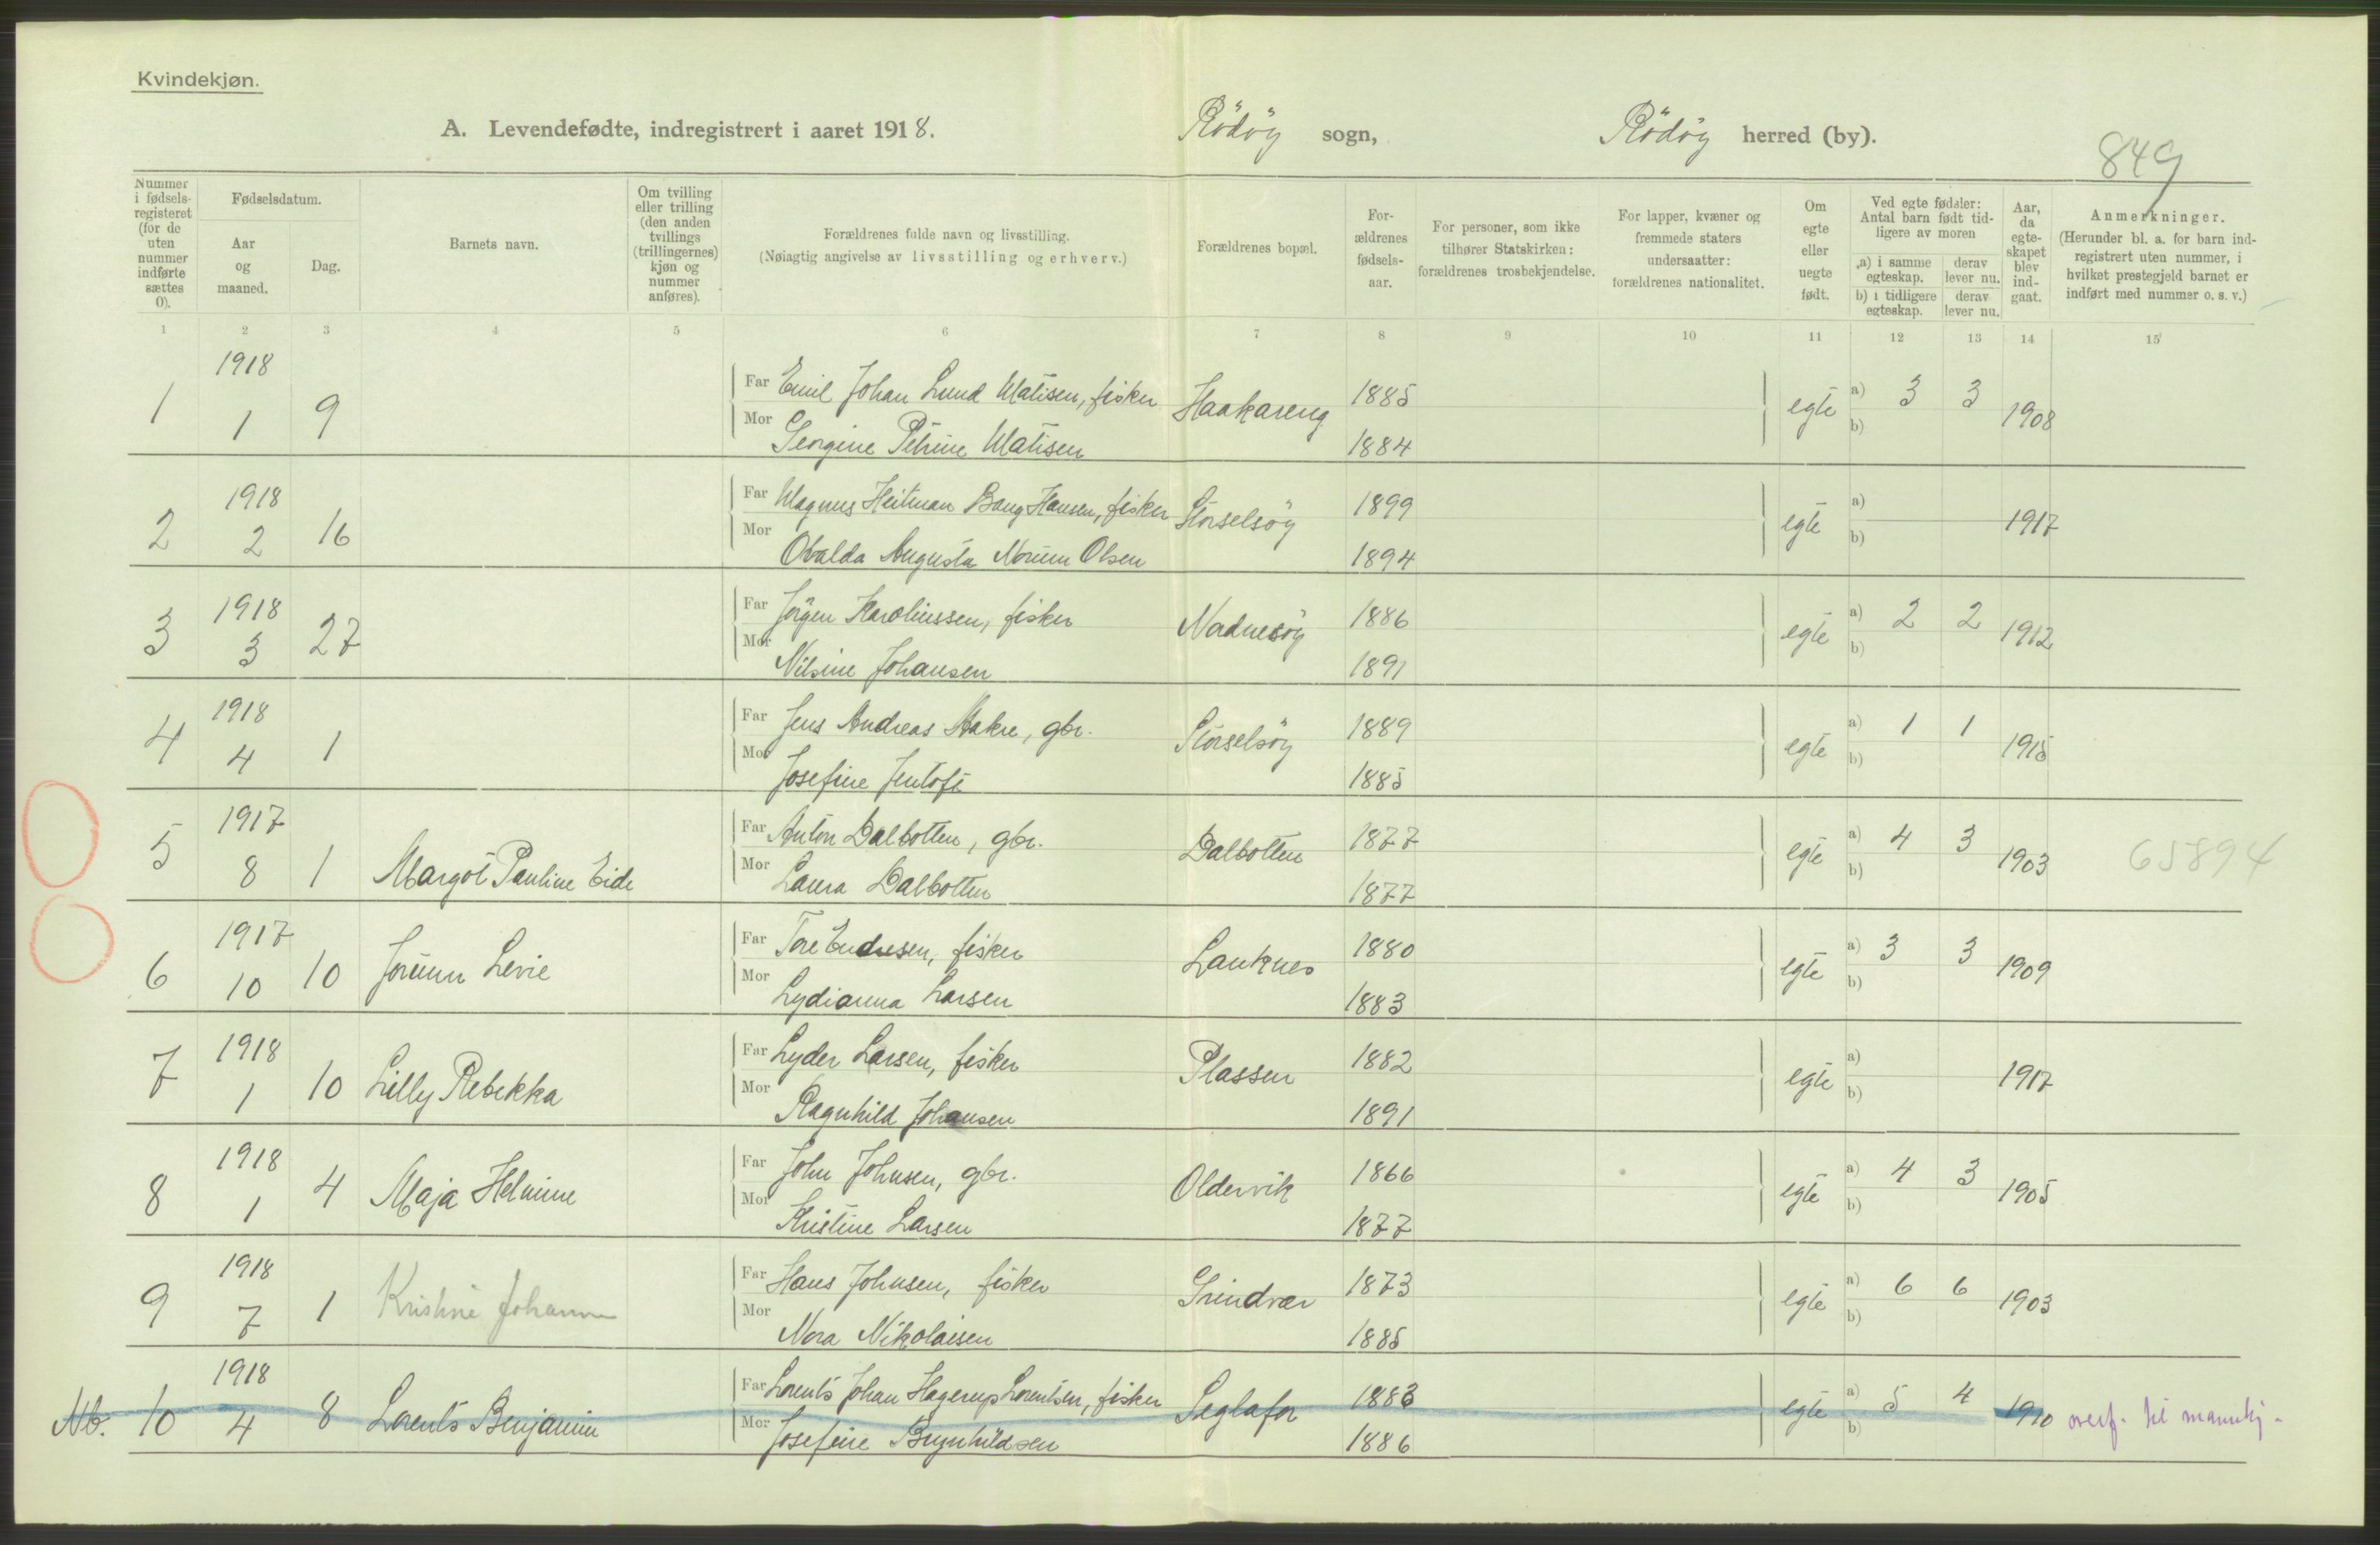 Kvindekjøn.
A. Levendefødte, indregistrert i aaret 1918. Rödöy sogn, Rödöy herred (by).
849
Nummer i fødsels-registeret (for de uten nummer indførte sættes 0).
Fødselsdatum.
Aar og maaned.
Dag.
Barnets navn.
Om tvilling eller trilling (den anden tvillings (trillingernes) kjøn og nummer anføres).
Forældrenes fulde navn og livsstilling.
(Nøiagtig angivelse av livsstilling og erhverv.)
Forældrenes bopæl.
For-ældrenes fødsels-aar.
For personer, som ikke tilhører Statskirken: forældrenes trosbekjendelse.
For lapper, kvæner og fremmede staters undersaatter: forældrenes nationalitet.
Om egte eller uegte født.
Ved egte fødsler: Antal barn født tid-ligere av moren
a) i samme egteskap. derav lever nu.
b) i tidligere egteskap. derav lever nu.
Aar, da egte-skapet blev ind-gaat.
Anmerkninger.
(Herunder bl. a. for barn ind-registrert uten nummer, i hvilket prestegjeld barnet er indført med nummer o. s. v.)
1 2 3 4 5 6 7 8 9 10 11 12 13 14 15
1 1918 1 9 Far Emil Johan Lund Matisen, fisker Haakareng 1885 egte a) 3 3 1908
Mor Georgine Petrine Matisen 1884 b)
2 1918 2 16 Far Magnus Heitman Bang Hansen, fisker Storselsöy 1899 egte a) 1917
Mor Ovalda Augusta Norum Olsen 1894 b)
3 1918 3 27 Far Jörgen Karoliussen, fisker Nordnesöy 1886 egte a) 2 2 1912
Mor Nilsine Johansen 1891 b)
4 1918 4 1 Far Jens Andreas Aakre, gbr. Storselsöy 1889 egte a) 1 1 1915
Mor Josefine Jentoft 1885 b)
5 1917 8 1 Margot Pauline Eide Far Anton Dalbotten, gbr. Dalbotten 1877 egte a) 4 3 1903 65894
Mor Laura Dalbotten 1877 b)
6 1917 10 10 Jorunn Levie Far Tore Endresen, fisker Lauknes 1880 egte a) 3 3 1909
Mor Lydianna Larsen 1883 b)
7 1918 1 10 Lilly Rebekka Far Lyder Larsen, fisker Plassen 1882 egte a) 1917
Mor Ragnhild Johansen 1891 b)
8 1918 1 4 Maja Helmine Far John Johnsen, gbr. Oldervik 1866 egte a) 4 3 1905
Mor Kristine Larsen 1877 b)
9 1918 7 1 Kristine Johanne Far Hans Johnsen, fisker Grindvær 1873 egte a) 6 6 1903
Mor Nora Nikolaisen 1885 b)
Nb. 10 1918 4 8 Lorents Benjamin Far Lorents Johan Hagerup Lorentsen, fisker Seglafor 1883 egte a) 5 4 1910 overf. til mannkj.
Mor Josefine Brynhildsen 1886 b)